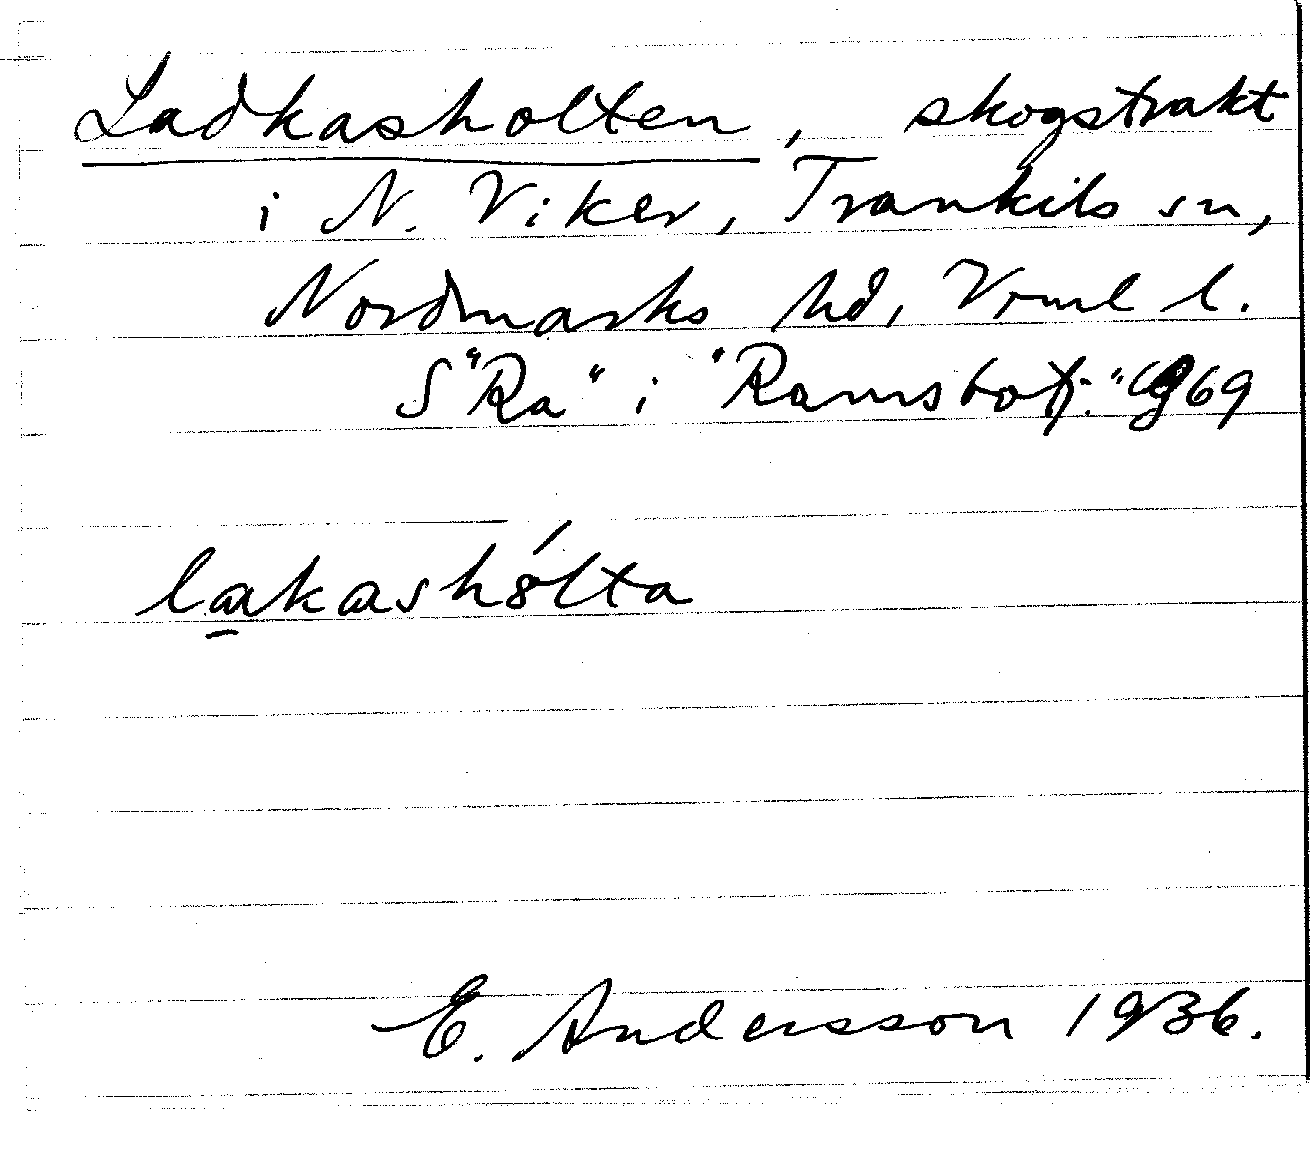 Ladkasholten, skogstrakt
i N. Viker, Trankils sn,
Nordmarks hd, Vrml l.
S "Ra" i "Ramsbotj." 69
lakashólta
E. Andersson 1936.